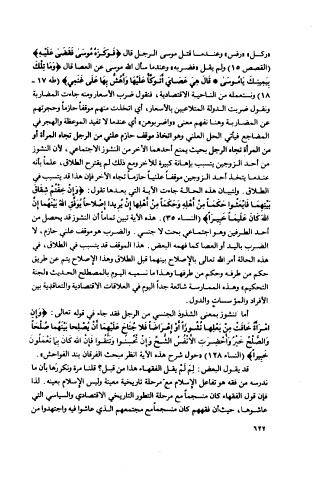 «ركل» «رفس» وعندما قتل موسى الرجل قال ﴿فَوَكَزَهُ مُوسَىٰ فَقَضَىٰ عَلَيْهِ﴾
(القصص ١٥) ولم يقل «فضربه» وعندما سأل الله موسى عن العصا قال ﴿وَمَا تِلْكَ
بِيَمِينِكَ يَامُوسَىٰ * قَالَ هِيَ عَصَايَ أَتَوَكَّأُ عَلَيْهَا وَأَهُشُّ بِهَا عَلَىٰ غَنَمِي﴾ (طه ١٧ -
١٨) ونستعمله من الناحية الاقتصادية، فنقول ضرب الأسعار ومنه جاءت المضاربة
ونقول ضربت الدولة المتلاعبين بالأسعار، أي اتخذت منهم موقفاً حازماً وحجرتهم
عن المضاربة وهنا نفهم معنى «واضربوهن» أي عندما لا تفيد الموعظة والهجر في
المضاجع فيأتي الحل العلني وهو اتخاذ موقف حازم علني من الرجل تجاه المرأة أو
من المرأة تجاه الرجل بحيث يمنع أحدهما الآخر من النشوز الاجتماعي، لأن النشوز
من أحد الزوجين يتسبب بإهانة كبيرة للآخر ومع ذلك لم يقترح الطلاق، علماً بأنه
عندما يتخذ أحد الزوجين موقفاً علنياً حازماً تجاه الآخر فإن هذا قد يتسبب في
الطلاق. ولتبيان هذه الحالة جاءت الآية التي بعدها تقول: ﴿وَإِنْ خِفْتُمْ شِقَاقَ
بَيْنِهِمَا فَابْعَثُوا حَكَماً مِنْ أَهْلِهِ وَحَكَماً مِنْ أَهْلِهَا إِنْ يُرِيدَا إِصْلَاحاً يُوَفِّقِ اللهُ بَيْنَهُمَا إِنَّ
اللهَ كَانَ عَلِيماً خَبِيراً﴾ (النساء ٣٥). هذه الآية تبين تماماً أن النشوز قد يحصل من
أحد الطرفين وهو اجتماعي بحت لا جنسي. والضرب هو موقف علني حازم، لا
الضرب باليد أو العصا كما فهمه البعض. هذا الموقف قد يتسبب في الطلاق، في
هذه الحالة أمر الله تعالى بالإصلاح بينهما قبل الطلاق وهذا الإصلاح يتم عن طريق
حكم من طرفه وحكم من طرفها وهذا ما نسميه اليوم بالمصطلح الحديث «لجنة
التحكيم» وهذه الممارسة شائعة جداً اليوم في العلاقات الاقتصادية والتعاقدية بين
الأفراد والمؤسسات والدول.
أما النشوز بمعنى الشذوذ الجنسي من الرجل فقد جاء في قوله تعالى: ﴿وَإِنِ
امْرَأَةٌ خَافَتْ مِنْ بَعْلِهَا نُشُوزاً أَوْ إِعْرَاضاً فَلَا جُنَاحَ عَلَيْهِمَا أَنْ يُصْلِحَا بَيْنَهُمَا صُلْحاً
وَالصُّلْحُ خَيْرٌ وَأُحْضِرَتِ الْأَنْفُسُ الشُّحَّ وَإِنْ تُحْسِنُوا وَتَتَّقُوا فَإِنَّ اللهَ كَانَ بِمَا تَعْمَلُونَ
خَبِيراً﴾ (النساء ١٢٨) «حول شرح هذه الآية انظر مبحث الفرقان بند الفواحش».
قد يقول البعض: لِمَ لَمْ يقل الفقهاء هذا من قبل؟ قلنا مرة ونكررها بأن ما
ندرسه من فقه هو تفاعل الإسلام مع مرحلة تاريخية معينة وليس الإسلام بعينه. لذا
فإن قول الفقهاء كان منسجماً مع مرحلة التطور التاريخي الاقتصادي والسياسي التي
عاشوها، حيث أن فقههم كان منسجماً مع مجتمعهم الذي عاشوا فيه واجتهدوا من
٦٢٢